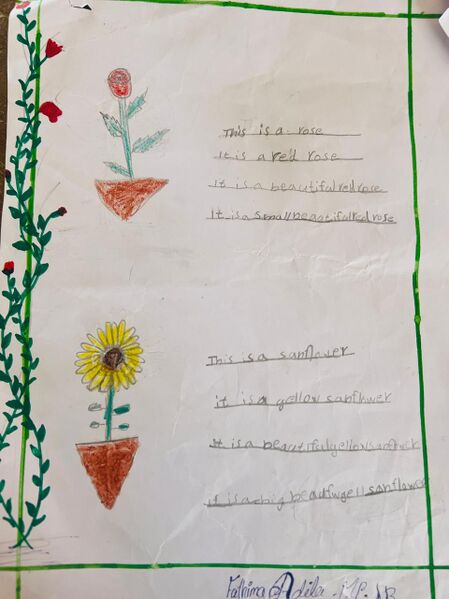 This is a rose
It is a red rose
It is a beautiful red rose
It is a small beautiful red rose
This is a sanflower
it is a yellow sanflower
It is a beautiful yellow
it is a big sanflower
Fathima Adila